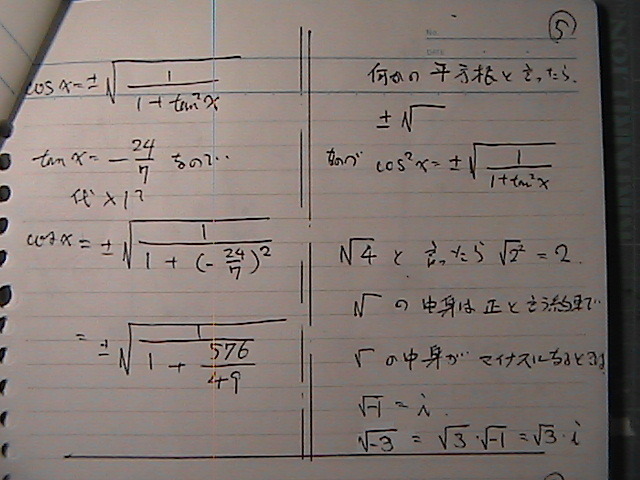 ⑤
No.
DATE
cos x = ± √(1/(1 + tan²x))
tan x = - 24/7 なので‥
代入して
cos x = ± √(1/(1 + (- 24/7)²))
= ± √(1/(1 + 576/49))
何かの 平方根と言ったら、
± √
なので cos²x = ± √(1/(1+tan²x))
√4 と言ったら √2² = 2.
√ の中身は正と言う約束で‥
√ の中身が マイナスになるときは
√-1 = i.
√-3 = √3・√-1 = √3・i